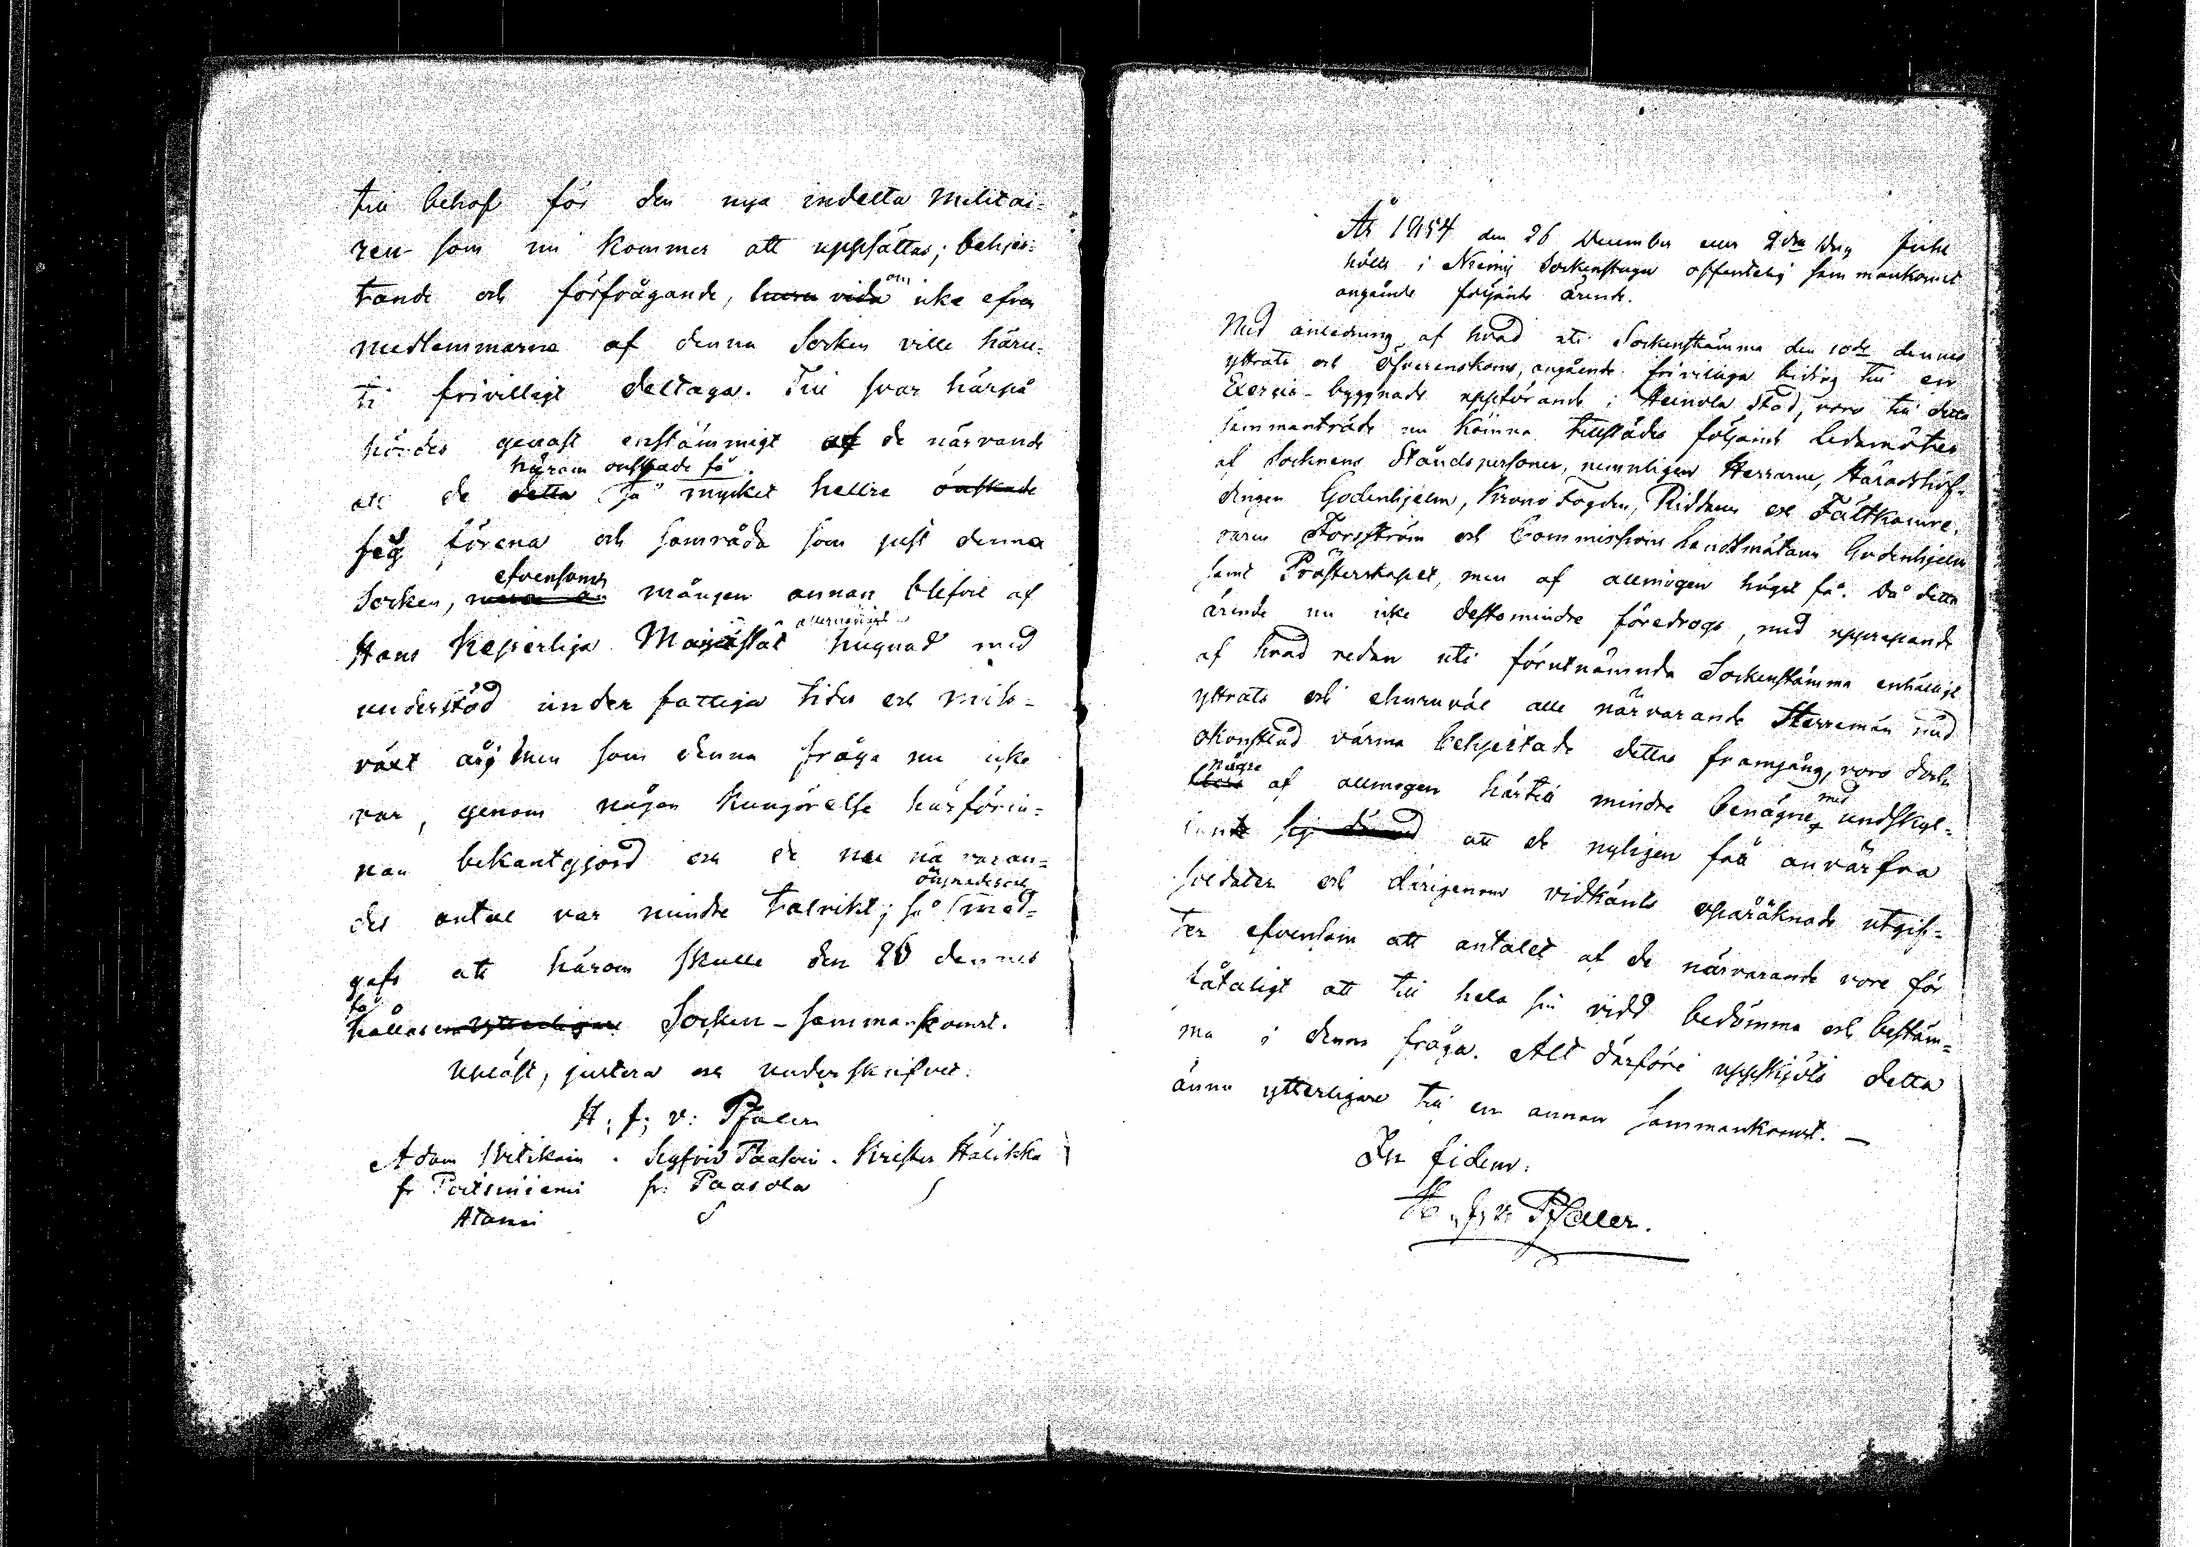 till behof för den nya indelta Militai-
ren som nu kommer att uppsättas; behjer-
tande och förfrågande, huru vida om icke äfven
medlemmarne af denna Socken ville häru-
ti frivilligt deltaga. Till svar härpå
hördes genast enstämmigt af de närvarande
häröm önskade få
att de detta så mycket hellre önskade
sig förena och samråda som just denna
äfvensom
Socken, mången annan blifvit af
allernådigst
Hans Kejserliga Majestät hugnad med
understöd under fattiga tider och miss-
växt år; Men som denna fråga nu icke
var, genom någon Kungörelse härförin-
nan bekantgjord och de nu närvaran-
önskades och
des antal var mindre talrikt; så med-
gafs att härom skulle den 26 dennes
få
hållas en ytterligare Socken-sammankomst.
Upläst, justera och underskrifvet.
H: f: v: Pfaler
Adam Sigfrid Paasoin. Krister Hälikkä
fr Poitsiniemi fr: Paasola
Atami
År 1854 den 26 December eller 2dra Dag Jule
hölls i Niemis Sockenstuga offentelig sammankomst
angående följande ärende.
Med anledning af hvad uti Sockenstämma den 10de dennes
yttrats och öfverenskoms, angående frivilliga bidrag till en
Exercis-byggnads uppförande i Heinola stad, voro till detta
sammanträde nu komna tillstädes följande ledamöter
af Socknens Ståndspersoner, nemnligen Herrarne, Häradshöf-
dingen Godenhjelm, Krono Fogden, Riddaren och Fältkamre-
raren Forsström och Commissions Landtmätaren Godenhjelm
samt Prästerskapet, men af allmogen högst få. Då detta
ärende nu icke destomindre föredrogs, med upprepande
af hvad redan uti förutnämnda Sockenstämma enhälligt
yttrats och ehuruväl alle närvarande Herremän med
okonstlad värma behjertade dettas framgång, voro dock
några
af allmogen härtill mindre benägne, med undskyl-
lande sig att de nyligen fått anvärfva
soldater och derigenom vidkänts oparäknade utgif-
ter äfvensom att antalet af de närvarande vore för
fåtaligt att till hela sin vidd bedömma och bestäm-
ma i denna fråga. Allt därföre uppskjöts detta
ännu ytterligare till en annan sammankomst. —
In fidem:
H. f: v: Pfaler.